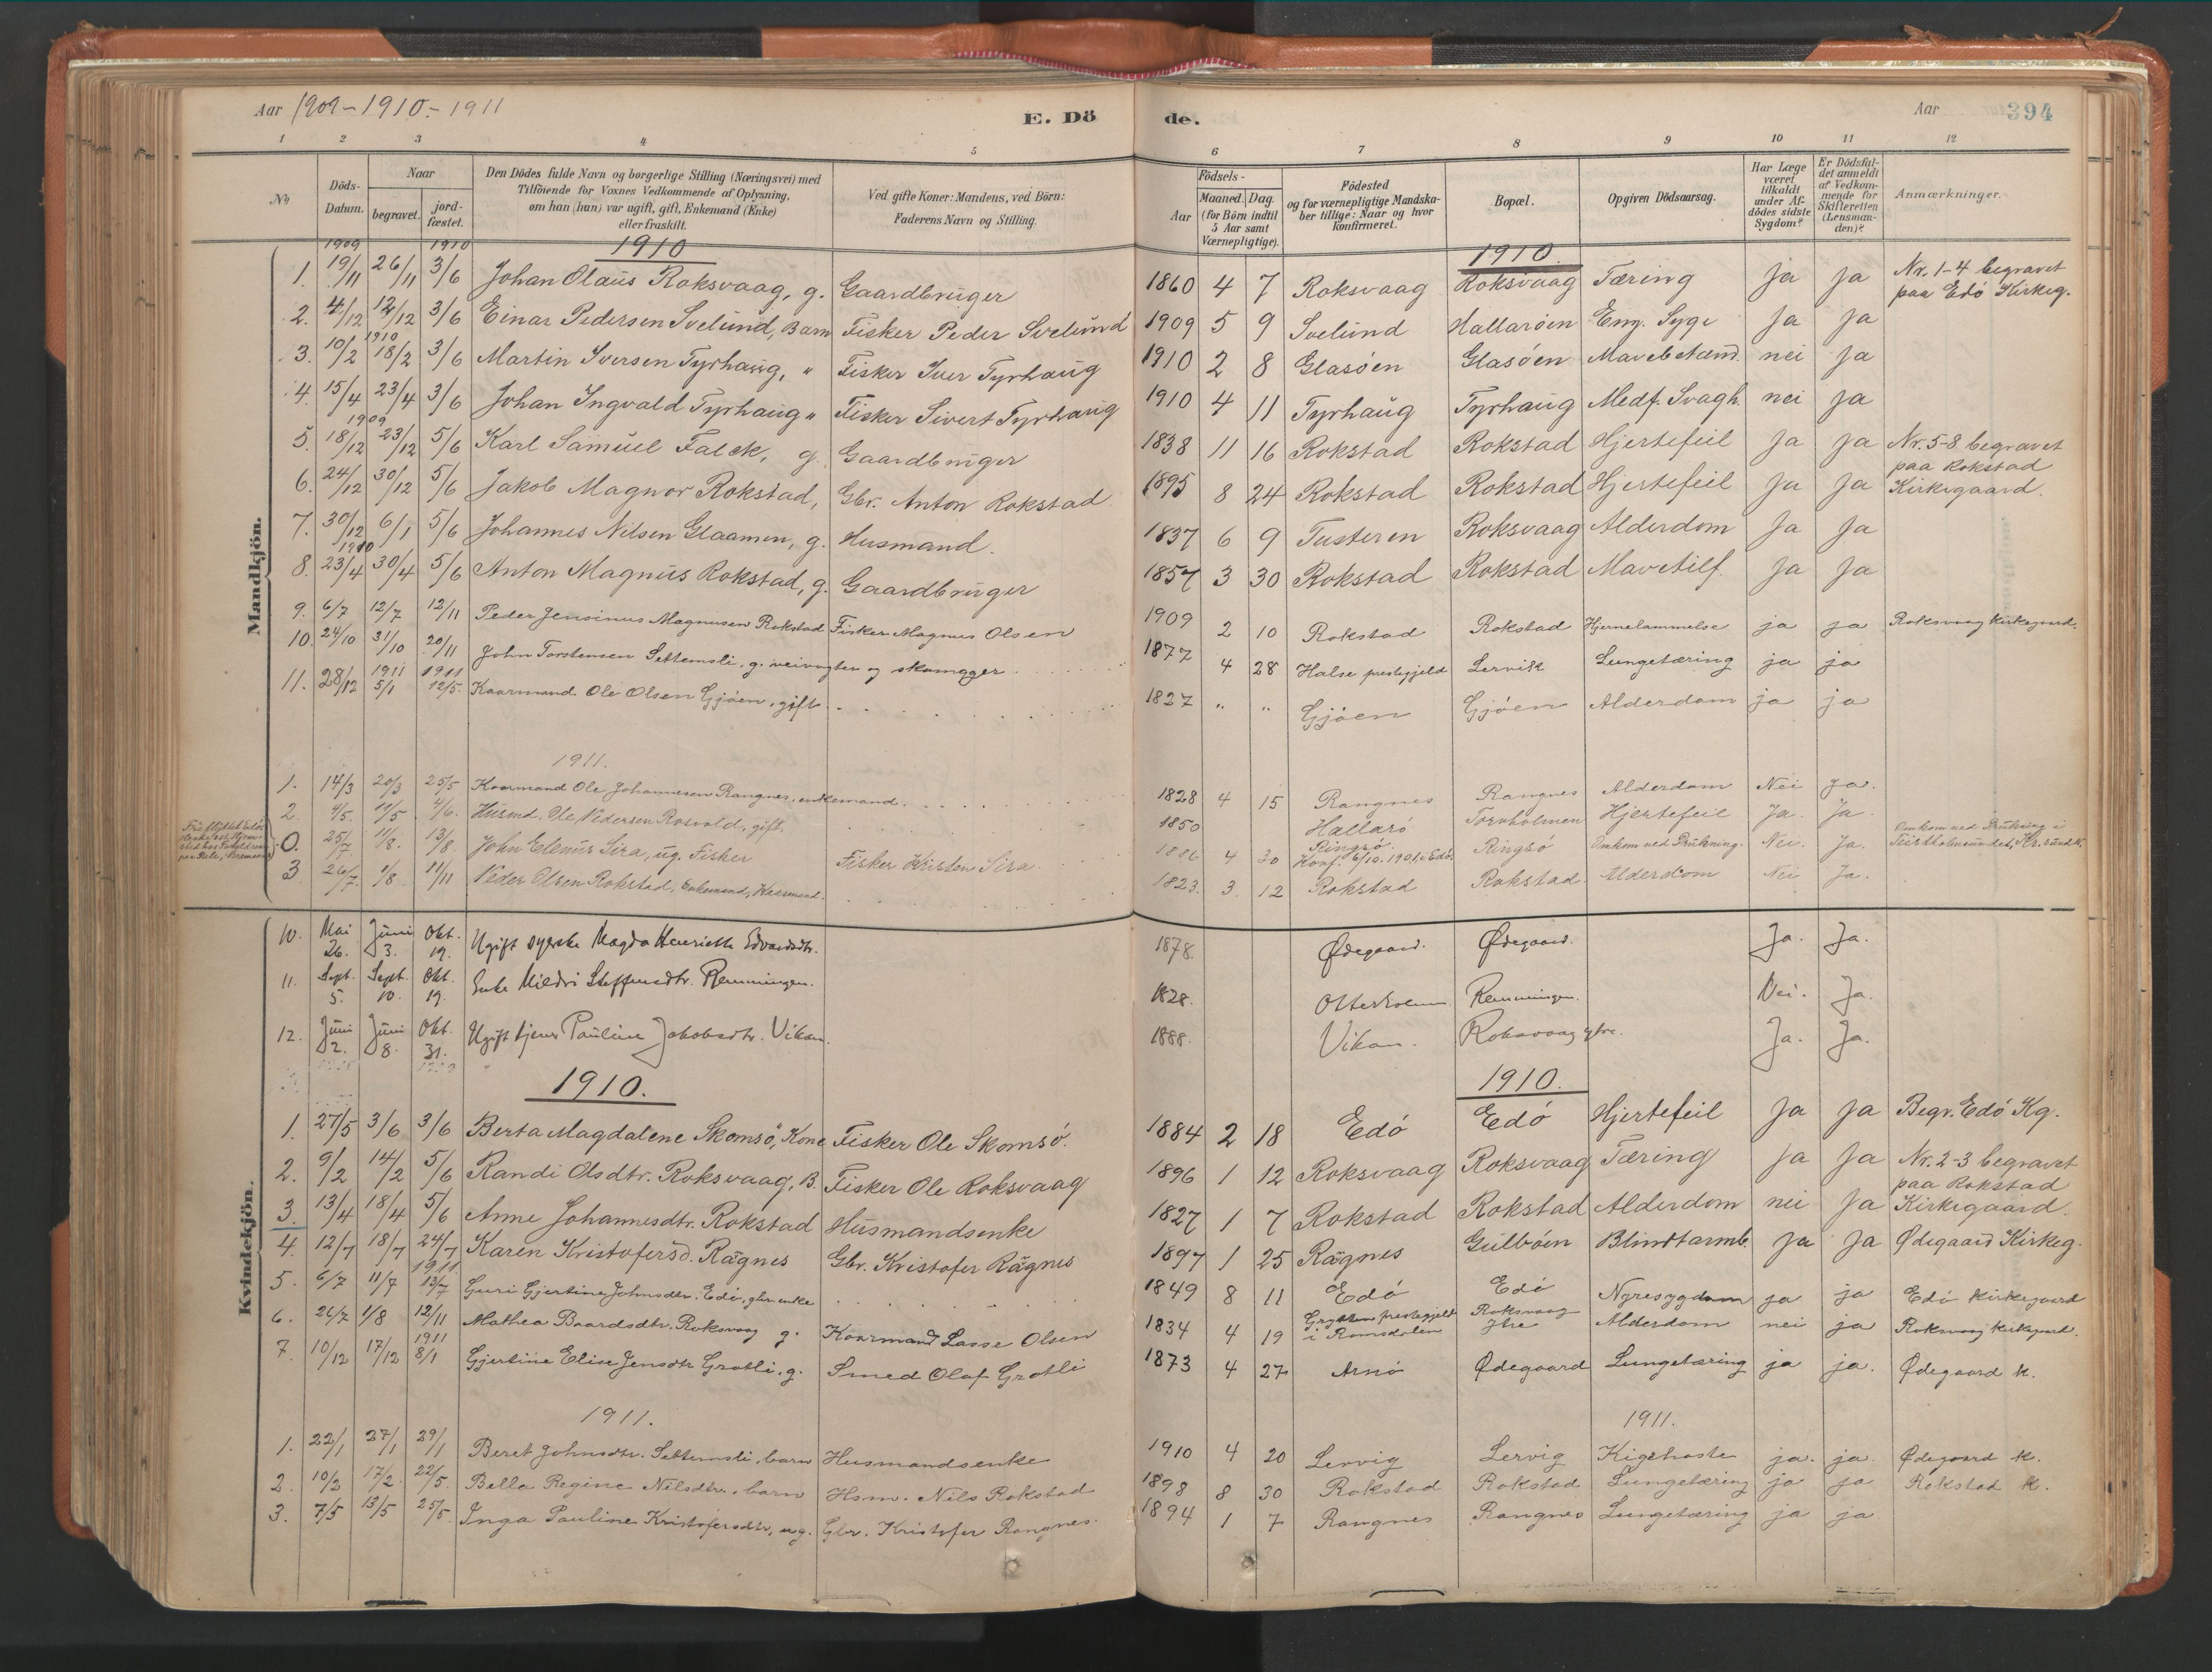 Aar 1909 - 1910 - 1911
E. Dö
de.
Aar
394
1 2 3 4 5 6 7 8 9 10 11 12
No
Döds-Datum.
Naar
begravet.
jord-fæstet.
Den Dödes fulde Navn og borgerlige Stilling (Næringsvei) med
Tilföiende for Voxnes Vedkommende af Oplysning,
om han (hun) var ugift, gift, Enkemand (Enke)
eller fraskilt.
Ved gifte Koner: Mandens, ved Börn:
Faderens Navn og Stilling.
Födsels-
Aar
Maaned. Dag.
(for Börn indtil
5 Aar samt
Værnepligtige).
Födested
og for værnepligtige Mandska-
ber tillige: Naar og hvor
konfirmeret.
Bopæl.
Opgiven Dödsaarsag.
Har Læge
været
tilkaldt
under Af-
dödes sidste
Sygdom?
Er Dödsfal-
det anmeldt
af Vedkom-
mende for
Skifteretten
(Lensman-
den)?
Anmærkninger.
Mandkjön.
1909 1910 1910 1910.
1. 19/11 26/11 3/6 Johan Olaus Roksvaag, g. Gaardbruger 1860 4 7 Roksvaag Roksvaag Tæring ja ja Nr. 1-4 begravet
paa Edö Kirkeg.
2. 4/12 12/12 3/6 Einar Pedersen Svelund, Barn Fisker Peder Svelund 1909 5 9 Svelund Hallaröen Eng. Syge Ja Ja
1910
3. 10/2 18/2 3/6 Martin Iversen Tyrhaug, " Fisker Iver Tyrhaug 1910 2 8 Glasöen Glasöen Mavebetænd. nei Ja
4. 15/4 23/4 3/6 Johan Ingvald Tyrhaug " Fisker Sivert Tyrhaug 1910 4 11 Tyrhaug Tyrhaug Medf. Svagh. nei ja
1909
5. 18/12 23/12 5/6 Karl Samuel Falck, g. Gaardbruger 1838 11 16 Rokstad Rokstad Hjertefeil Ja Ja Nr. 5-8 begravet
paa Rokstad
6. 24/12 30/12 5/6 Jakob Magnor Rokstad, Gbr. Anton Rokstad 1895 8 24 Rokstad Rokstad Hjertefeil Ja Ja Kirkegaard.
7. 30/12 6/1 5/6 Johannes Nilsen Glaamen, g. Husmand. 1837 6 9 Tusteren Roksvaag Alderdom Ja Ja
1910
8. 23/4 30/4 5/6 Anton Magnus Rokstad, g. Gaardbruger 1857 3 30 Rokstad Rokstad Mavetilf. Ja Ja
9. 6/7 12/7 12/11 Peder Jensinus Magnusen Rokstad Fisker Magnus Olsen 1909 2 10 Rokstad Rokstad Hjernelammelse ja ja Roksvaag kirkegaard.
10. 24/10 31/10 20/11 John Torstensen Settemsli, g. veivogter og skomager 1877 4 28 Halse prestegjeld Lervik Lungetæring ja ja
1911 1911
11. 28/12 5/1 12/5. Kaarmand Ole Olsen Gjöen, gift. 1827 " " Gjöen Gjöen Alderdom ja ja
1911.
1. 14/3 20/3 25/5 Kaarmand Ole Johannesen Rangnes, enkemand. 1828 4 15 Rangnes Rangnes Alderdom Nei Ja.
2. 4/5. 11/5 4/6. Husmd. Ole Pedersen Rosvold, gift. 1850 Hallarö Tornholmen Hjertefeil Ja. Ja.
0. 25/7 11/8. 13/8. John Elenus Sira, ug. Fisker Fisker Kristen Sira 1886 4 30 Ringsö.
Konf. 6/10. 1901, i Edö. Ringsö Omkom ved Drukning. Nei. Ja. Omkom ved Drukning i
3 26/7. 1/8 11/11 Peder Olsen Rokstad, Enkemand, Husmand. 1823. 3. 12 Rokstad Rokstad. Alderdom Nei Ja.
Kvindekjön.
10. Mai 26. Juni 3. Okt. 19. Ugift syerske Magda Henriette Edvardsdtr. 1878. Ødegaard. Ødegaard. Ja. Ja.
11. Sept. 5. Sept. 10. Okt. 19. Enke Mildri Steffensdtr. Remmingen. 1828. Otterholmen Remmingen. Nei. Ja.
12. Juni 2. Juni 8. Okt. 31. Ugift tjener Pauline Jakobsdtr. Vikan. 1888. Vikan. Roksvaag ytre. Ja. Ja.
1910. 1910.
1. 27/5 3/6 3/6 Berta Magdalene Skomsö, Kone Fisker Ole Skomsö. 1884 2 18 Edö Edö Hjertefeil Ja Ja Begr. Edö Kg.
2. 9/2 14/2 5/6 Randi Olsdtr. Roksvaag, B. Fisker Ole Roksvaag 1896 1 12 Roksvaag Roksvaag Tæring Ja Ja Nr. 2-3 begravet
paa Rokstad
3. 13/4 18/4 5/6 Anne Johannesdtr. Rokstad Husmandsenke 1827 1 7 Rokstad Rokstad Alderdom nei Ja Kirkegaard.
4. 12/7 18/7 24/7 Karen Kristofersd. Rägnes Gbr. Kristofer Rägnes 1897 1 25 Rägnes Gulböen Blindtarmb. Ja Ja Ødegaard Kirkeg.
1911
5. 6/7 11/7 13/7 Guri Gjertine Johnsdtr. Edö, gbr enke 1849 8 11 Edö Edö Nyresygdom ja ja Edö Kirkegaard
6. 26/7 1/8 12/11 Mathea Baardsdtr. Roksvaag g. Kaarmand Lasse Olsen 1834 4 19 Gryttens prestegjeld
i Romsdalen Roksvaag
Ytre Alderdom nei ja Roksvaag kirkegaard.
1911
7. 10/12 17/12 8/1 Gjertine Elise Jensdtr Grotli, g. Smed Olaf Grotli 1873 4 27 Arnö Ødegaard Lungetæring ja ja. Ødegaard k.
1911. 1911.
1. 22/1 27/1 29/1 Beret Johnsdtr. Settemsli, barn Husmandsenke 1910 4 20 Lervig Lervig Kighoste ja. ja. Ødegaard k.
2. 10/2 17/2. 22/5. Bella Regine Nilsdtr., barn Hsm. Nils Rokstad 1898 8 30 Rokstad Rokstad Lungetæring ja ja Rokstad k.
3. 7/5 13/5 25/5. Inga Pauline Kristofersdtr, ug. Gbr. Kristofer Rangnes. 1894 1 7 Rangnes Rangnes Lungetæring ja ja